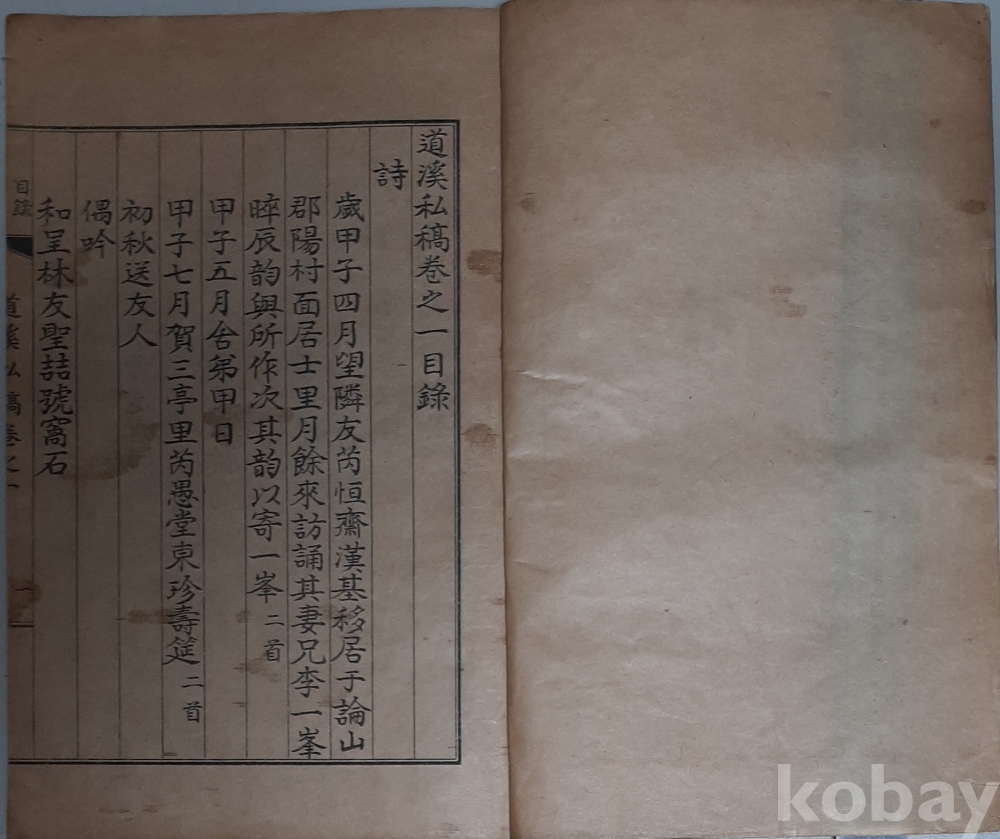 道溪私稿卷之一目錄
詩
歲甲子四月望隣友芮恒齋漢基移居于論山
郡陽村面居士里月餘來訪誦其妻兄李一峯
晬辰韵與所作次其韵以寄一峯 二首
甲子五月舍弟甲日
甲子七月賀三亭里芮愚堂東珍壽筵 二首
初秋送友人
偶吟
和呈林友聖喆號窩石
目錄
道溪私稿卷之一
一
kobay